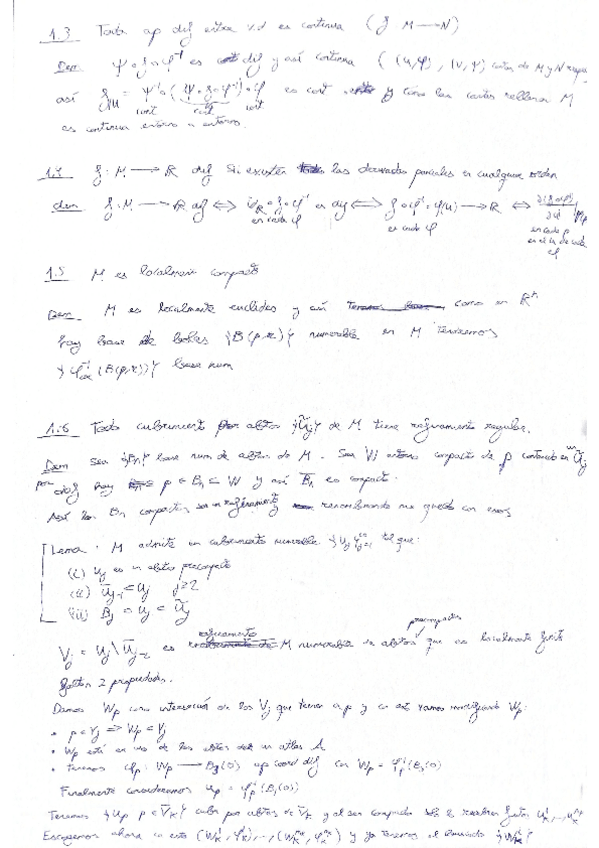 1.3 Toda ap dif entre v.d es continua (f: M → N)
Dem ψ∘f∘φ⁻¹ es dif y así continua ((U,φ), (V,ψ) cartas de M y N
así f|U = ψ⁻¹∘(ψ∘f∘φ⁻¹)∘φ es cont y como las cartas rellenan M
cont cont cont
es continua entorno a entorno.
1.4 f: M → R dif sii existen las derivadas parciales en cualquier orden
dem f: M → R dif ⟺ ∘f∘φ⁻¹ es dif ⟺ f∘φ⁻¹: φ(U) → R ⟺
en cada φ en cada φ en cada p
1.5 M es localmente compacto
Dem M es localmente euclídea y así como en Rⁿ
hay base de bolas {B(p,r)} numerable en M tendremos
{φ⁻¹(B(p,r))} base num
1.6 Todo cubrimiento por abtos {Ũj} de M tiene refinamiento regular.
Dem Sea {Bn} base num de abtos de M. Sea W entorno compacto de p contenido en Ũj
por hay p ∈ Bn ⊂ W y así B̄n es compacto.
Así los Bn compactos son refinamiento renombrando me quedo con
Lema · M admite un cubrimiento numerable {Uj} j=1 tal que:
(i) Uj es un abto precompacto
(ii) Ūj-1 ⊂ Uj j≥2
(iii) Bj ⊂ Uj
precompactos
refinamiento
Vj = Uj \ Ūj-2 es M numerable en abtos que es localmente finito
2 propiedades.
Damos Wp como intersección de los Vj que tienen a p y en esto vamos modificando Wp:
• p ∈ Vj ⟹ Wp ⊂ Vj
• Wp está en uno de los abtos del atlas A
• Tenemos φp: Wp → B3(0) ap coord dif con Wp = φp⁻¹(B3(0))
Finalmente consideramos Up = φp⁻¹(B1(0))
Tenemos {Up p ∈ V̄k} cubr por abtos de V̄k y al ser compacto
Escogemos ahora en esto (Wk¹, φk¹), ..., y ya tenemos el buscado